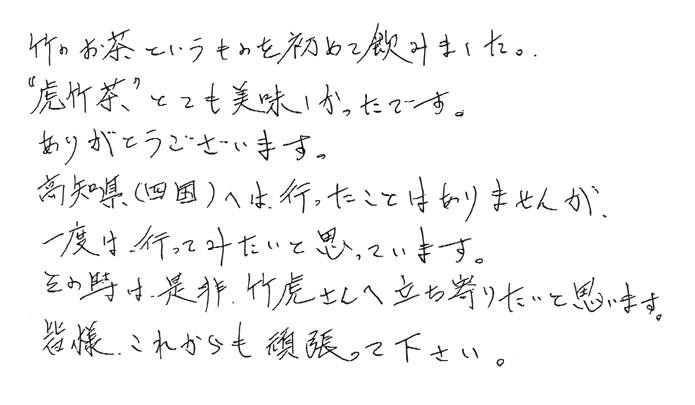 竹のお茶というものを初めて飲みました。
“虎竹茶、”とても美味しかったです。
ありがとうございます。
高知県、(四国)へは、行ったことはありませんが、
一度は、行ってみたいと思っています。
その時は、是非、竹虎さんへ立ち寄りたいと思います。
皆様、これからも頑張って下さい。